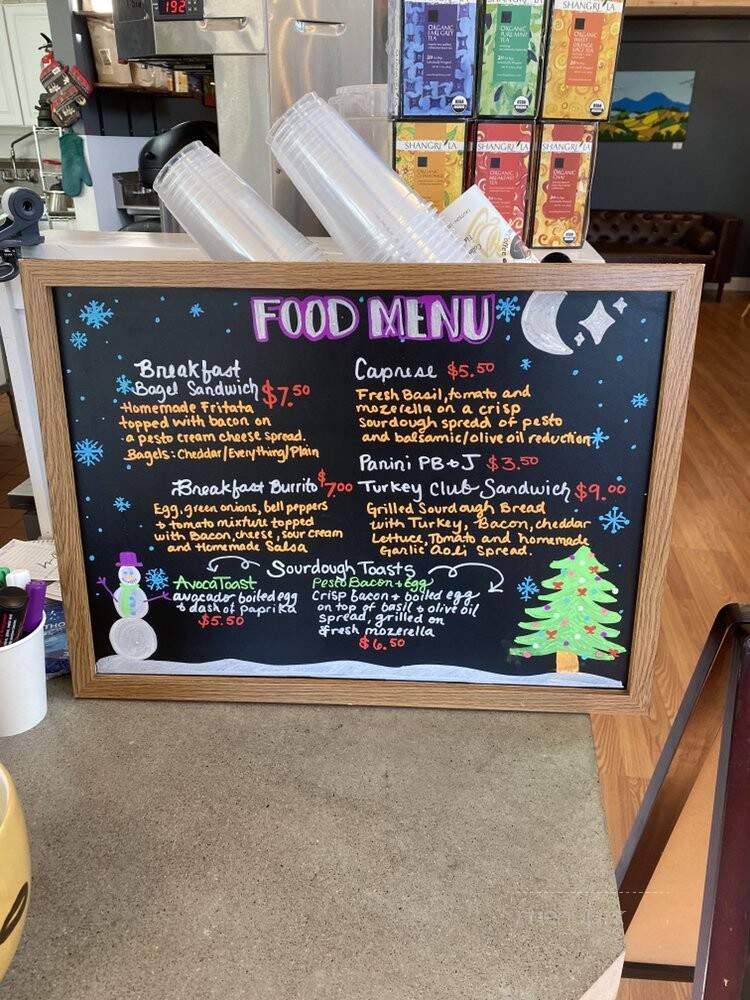 192
SHANGRI LA
ORGANIC
EARL GREY
TEA
SHANGRI LA
ORGANIC
PURE MINT
TEA
SHANGRI LA
ORGANIC
SWEET
ORANGE
SPICE TEA
SHANGRI LA
ORGANIC
SHANGRI LA
ORGANIC
BREAKFAST
TEA
SHANGRI LA
ORGANIC
CHAI
FOOD MENU
Breakfast
Bagel Sandwich $7.50
Homemade Fritata
topped with bacon on
a pesto cream cheese spread.
Bagels: Cheddar/Everything/Plain
Breakfast Burrito $7.00
Egg, green onions, bell peppers
+ tomato mixture topped
with Bacon, cheese, sour cream
and Homemade Salsa
Caprese $5.50
Fresh Basil, tomato and
mozerella on a crisp
sourdough spread of pesto
and balsamic/olive oil reduction
Panini PB+J $3.50
Turkey Club Sandwich $9.00
Grilled Sourdough Bread
with Turkey, Bacon, cheddar
Lettuce, Tomato and homemade
Garlic Aoli Spread.
Sourdough Toasts
AvocaToast
avocado, boiled egg
+ dash of paprika
$5.50
Pesto Bacon + Egg
Crisp bacon + boiled egg
on top of basil + olive oil
spread, grilled on
fresh mozerella
$6.50